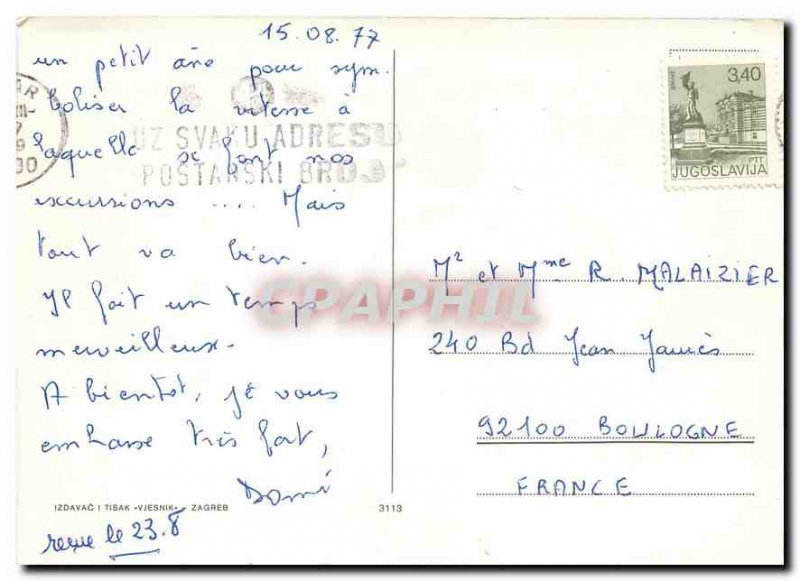 15.08.77
un petit âne pour sym-
boliser la vitesse à
laquelle se font nos
excursions .... Mais
tout va bien.
Il fait un temps
merveilleux.
A bientot, je vous
embrasse très fort,
Domi
reçue le 23.8
UZ SVAKU ADRESU
POŠTANSKI BROJ
3,40
PTT
JUGOSLAVIJA
Mr et Mme R. MALAIZIER
240 Bd Jean Jaurès
92100 BOULOGNE
FRANCE
IZDAVAČ I TISAK «VJESNIK» ZAGREB
3113
CPAPHIL